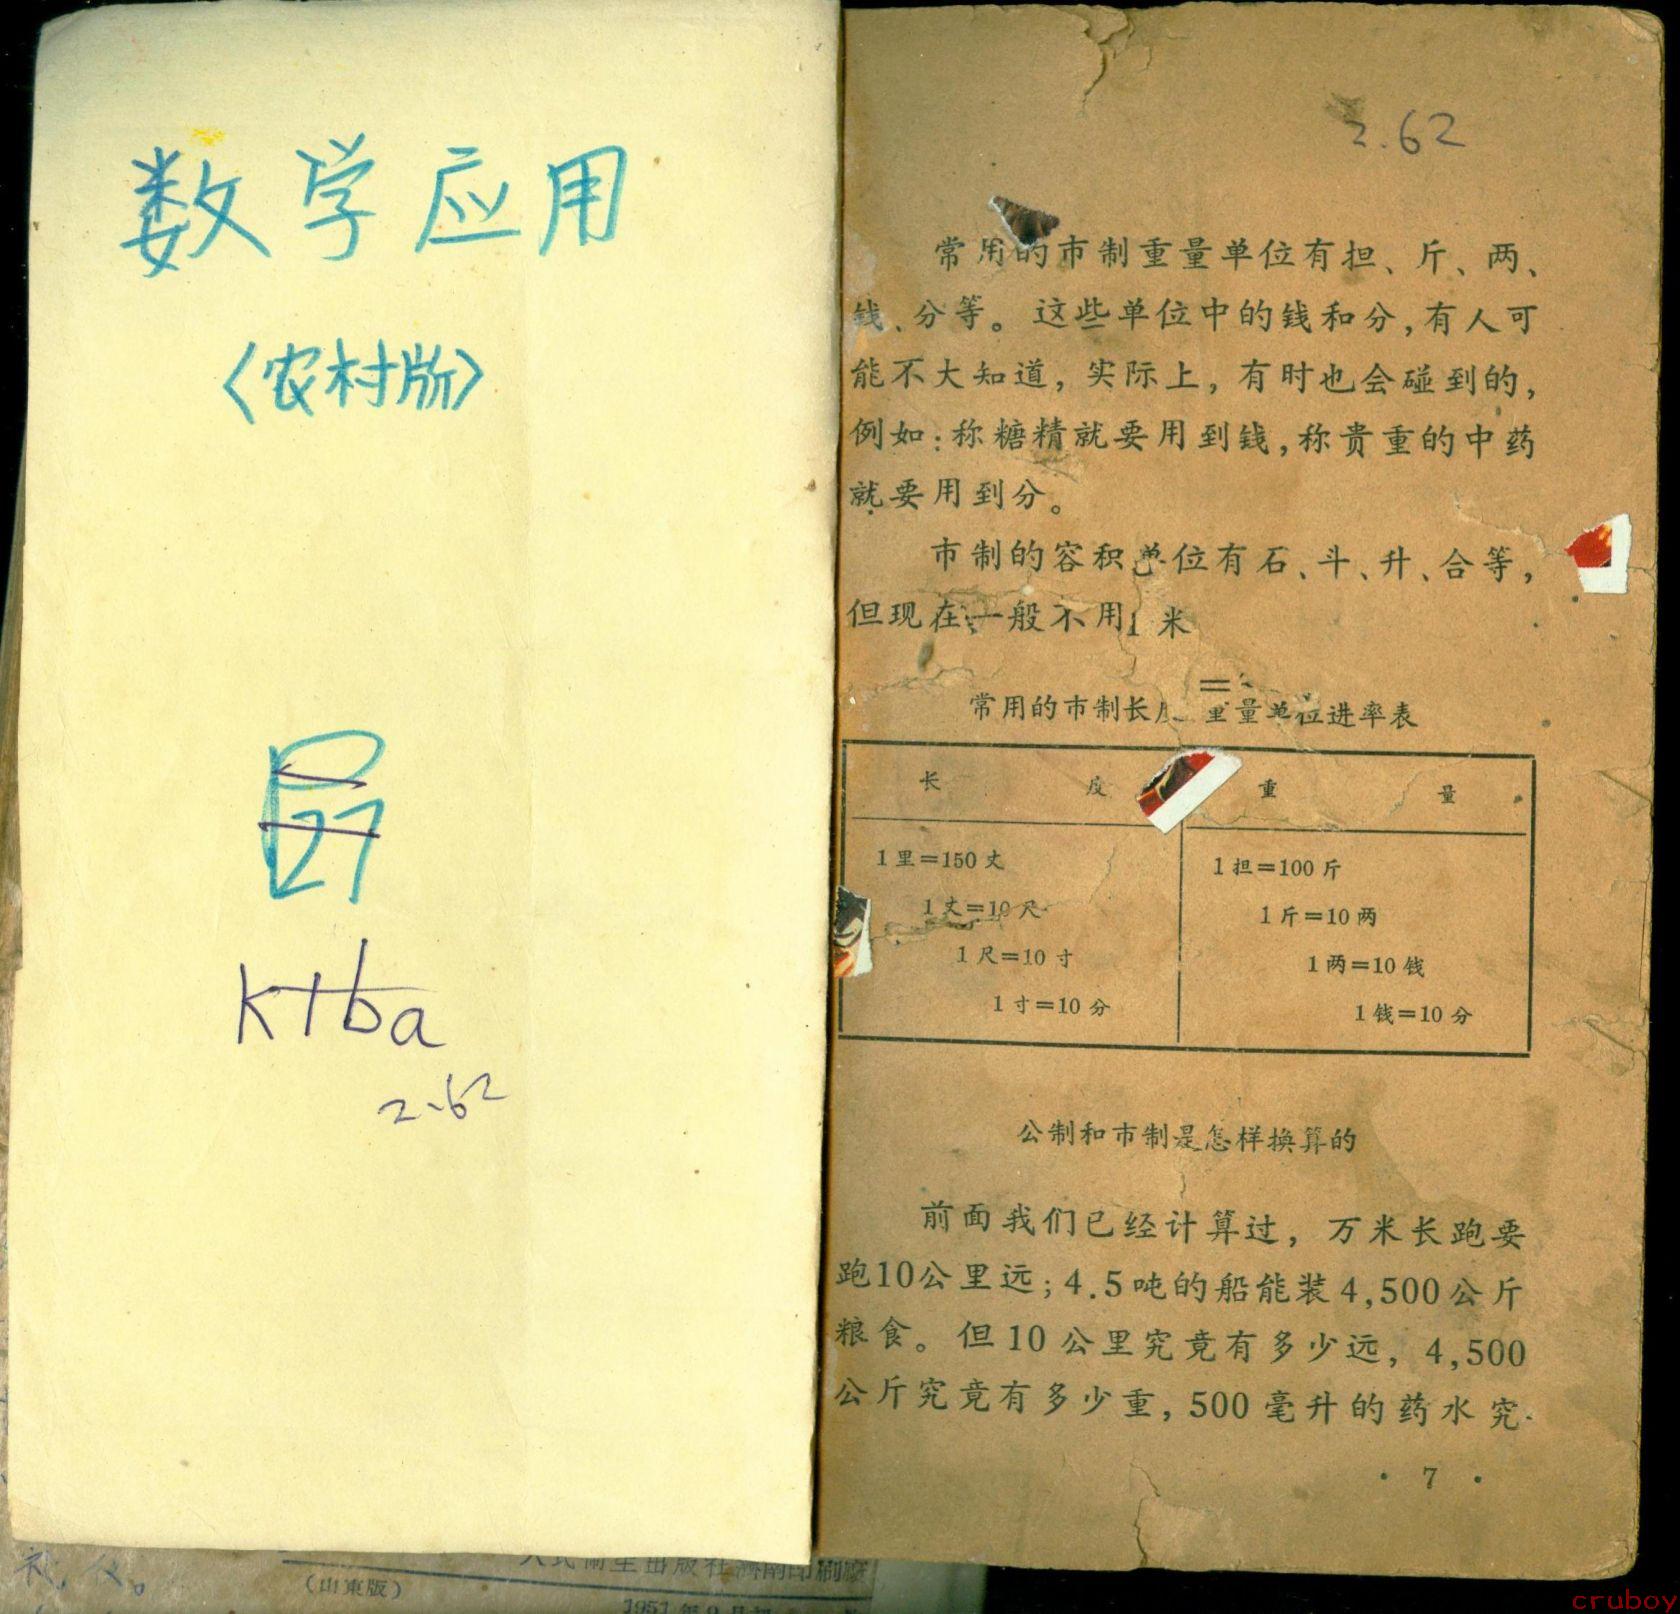 数学应用
〈农村版〉
27
ktba
2.62
(山東版)
2.62
常用的市制重量单位有担、斤、两、
钱、分等。这些单位中的钱和分,有人可
能不大知道,实际上,有时也会碰到的,
例如:称糖精就要用到钱,称贵重的中药
就要用到分。
市制的容积单位有石、斗、升、合等,
但现在一般不用1 米
常用的市制长 重量单位进率表
长度 重量
1里=150丈 1担=100斤
1丈=10尺 1斤=10两
1尺=10寸 1两=10钱
1寸=10分 1钱=10分
公制和市制是怎样换算的
前面我们已经计算过,万米长跑要
跑10公里远;4.5吨的船能装4,500公斤
粮食。但10公里究竟有多少远,4,500
公斤究竟有多少重,500毫升的药水究
· 7 ·
cruboy